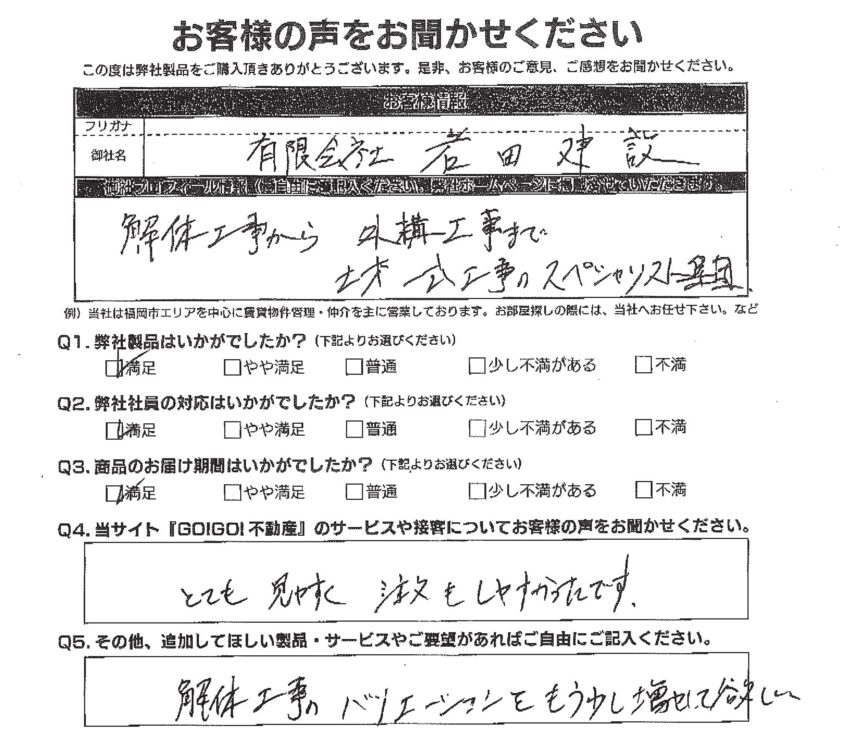 お客様の声をお聞かせください
この度は弊社製品をご購入頂きありがとうございます。是非、お客様のご意見、ご感想をお聞かせください。
お客様情報
フリガナ
御社名 有限会社 岩田建設
御社プロフィール情報（ご自由にご記入ください、弊社ホームページに掲載させていただきます。
解体工事から 外構工事まで
土木一式工事のスペシャリスト集団.
例）当社は福岡市エリアを中心に賃貸物件管理・仲介を主に営業しております。お部屋探しの際には、当社へお任せ下さい。など
Q1. 弊社製品はいかがでしたか？（下記よりお選びください）
満足 やや満足 普通 少し不満がある 不満
Q2. 弊社社員の対応はいかがでしたか？（下記よりお選びください）
満足 やや満足 普通 少し不満がある 不満
Q3. 商品のお届け期間はいかがでしたか？（下記よりお選びください）
満足 やや満足 普通 少し不満がある 不満
Q4. 当サイト『GO!GO!不動産』のサービスや接客についてお客様の声をお聞かせください。
とても 見やすく 注文もしやすかったです.
Q5. その他、追加してほしい製品・サービスやご要望があればご自由にご記入ください。
解体工事の バリエーションを もう少し増やして欲しい